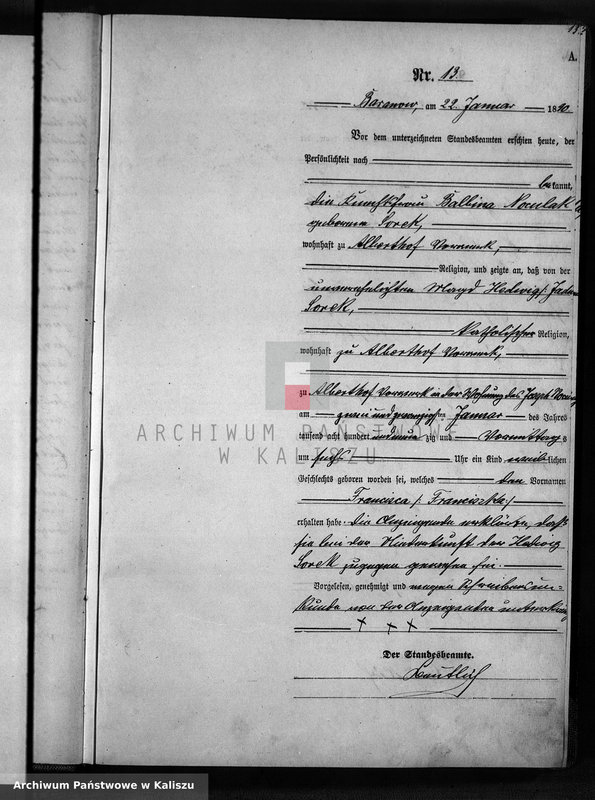 A.
Nr. 13.
Baranow, am 22. Januar 1890.
Vor dem unterzeichneten Standesbeamten erschien heute, der
Persönlichkeit nach
bekannt,
die Knechtsfrau Balbina Nowak
geborene Sorek,
wohnhaft zu Alberthof Vorwerk,
Religion, und zeigte an, daß von der
unverehelichten Magd Hedwig /:
Sorek,
katholischer Religion,
wohnhaft zu Alberthof Vorwerk,
zu Alberthof Vorwerk in der Wohnung des
am zwei und zwanzigsten Januar des Jahres
tausend acht hundert neunzig und Vormittags
um sechs Uhr ein Kind weiblichen
Geschlechts geboren worden sei, welches den Vornamen
Francisca /: Franciszka :/
erhalten habe. Die Anzeigende erklärte, daß
sie bei der Niederkunft der Hedwig
Sorek zugegen gewesen sei.
Vorgelesen, genehmigt und wegen Schreibensun-
kunde von der Anzeigenden
+ + +
Der Standesbeamte.
ARCHIWUM PAŃSTWOWE
W KALISZU
Archiwum Państwowe w Kaliszu